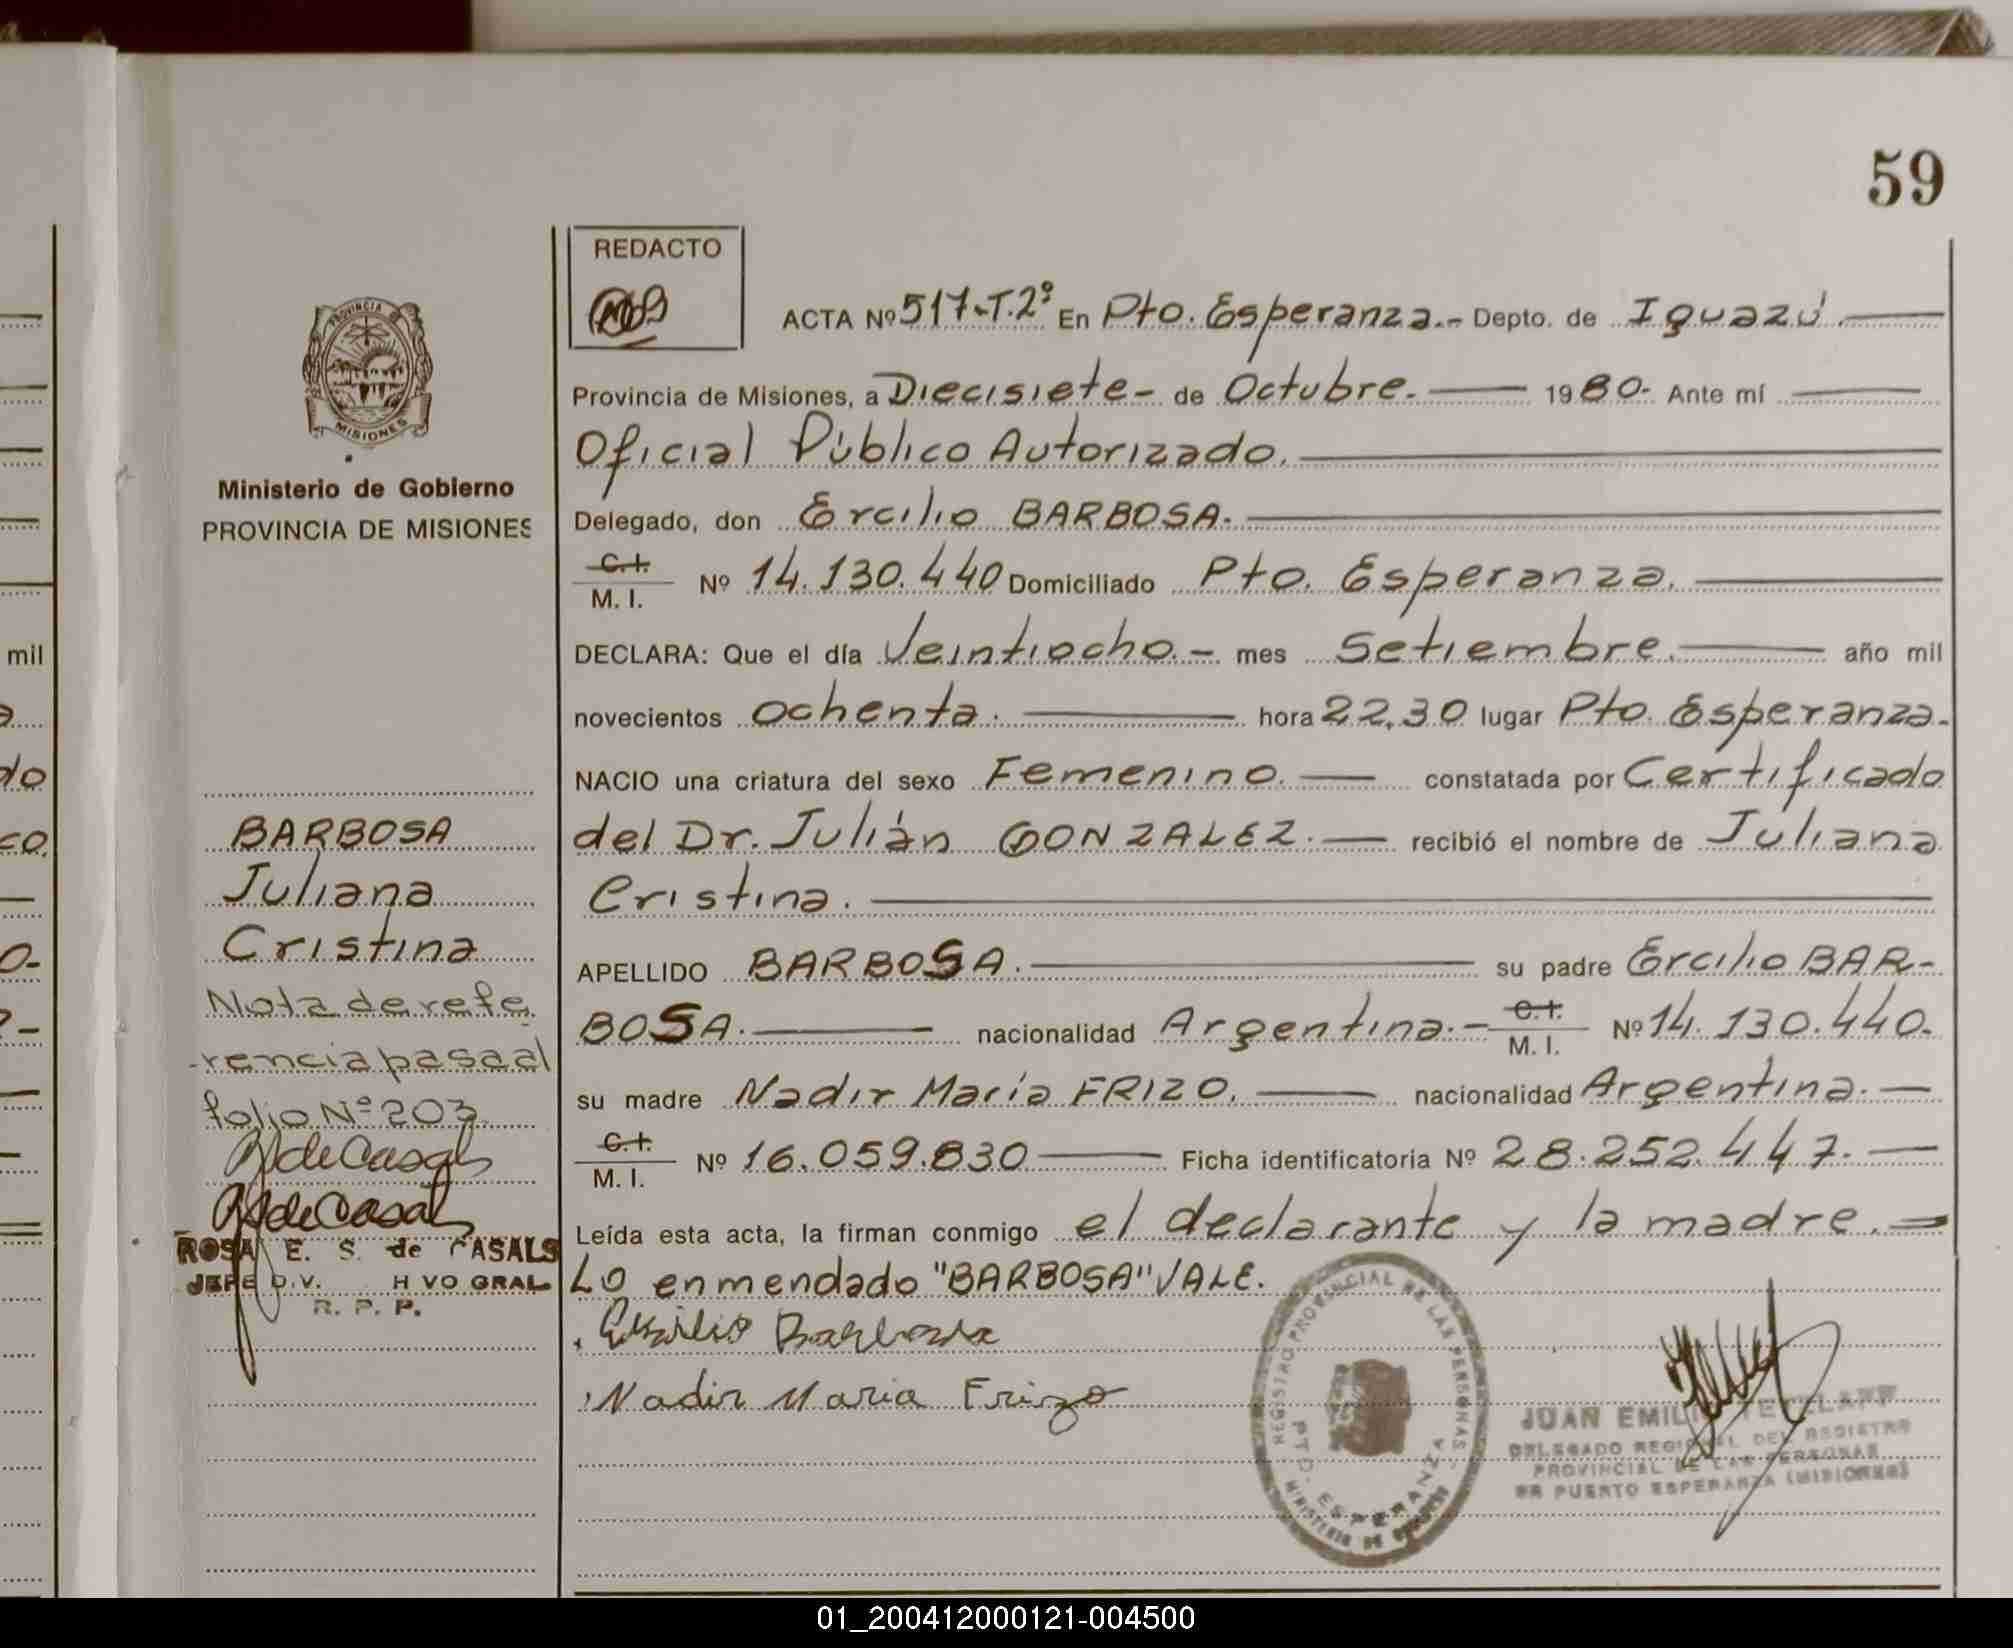 59
REDACTO
PROVINCIA DE
MISIONES
Ministerio de Gobierno
PROVINCIA DE MISIONES
BARBOSA
Juliana
Cristina
Nota de refe
-rencia pasa al
folio Nº 203
RSdeCasals
RSdeCasals
ROSA E. S. de CASALS
JEFE DIV. H VO GRAL
R. P. P.
ACTA Nº 517-T.2º En Pto. Esperanza.- Depto. de Iguazú.
Provincia de Misiones, a Diecisiete- de Octubre. 1980- Ante mí
Oficial Público Autorizado.
Delegado, don Ercilio BARBOSA.
C.I.
M. I. Nº 14.130.440 Domiciliado Pto. Esperanza.
DECLARA: Que el día Veintiocho.- mes Setiembre. año mil
novecientos ochenta. hora 22,30 lugar Pto. Esperanza.
NACIO una criatura del sexo Femenino. constatada por Certificado
del Dr. Julián GONZALEZ. recibió el nombre de Juliana
Cristina.
APELLIDO BARBOSA. su padre Ercilio BAR-
BOSA. nacionalidad Argentina.- C.I.
M. I. Nº 14.130.440.
su madre Nadir María FRIZO. nacionalidad Argentina.-
C.I.
M. I. Nº 16.059.830 Ficha identificatoria Nº 28.252.447.
Leída esta acta, la firman conmigo el declarante y la madre.=
Lo enmendado "BARBOSA" VALE.
Ercilio Barbosa
Nadir Maria Frizo
REGISTRO PROVINCIAL DE LAS PERSONAS
PTO. ESPERANZA
MINISTERIO DE GOBIERNO
JUAN EMILIO
DELEGADO REGIONAL DEL REGISTRO
PROVINCIAL DE LAS PERSONAS
DE PUERTO ESPERANZA (MISIONES)
mil
do
co
01_200412000121-004500